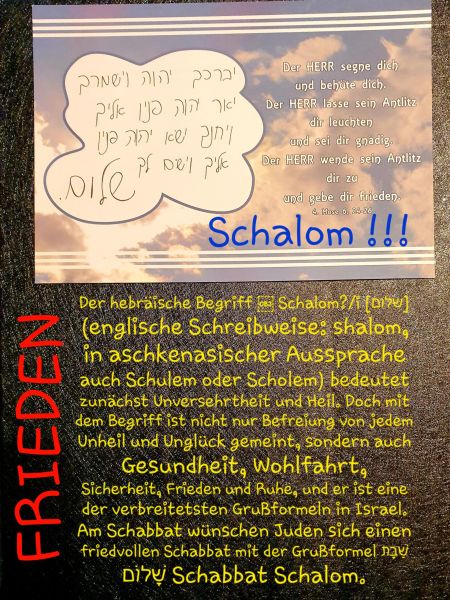 יברכך יהוה וישמרך
יאר יהוה פניו אליך
ויחנך ישא יהוה פניו
אליך וישם לך
שלום.
Der HERR segne dich
und behüte dich.
Der HERR lasse sein Antlitz
dir leuchten
und sei dir gnädig.
Der HERR wende sein Antlitz
dir zu
und gebe dir frieden.
4. Mose 6, 24-26
Schalom !!!
FRIEDEN
Der hebräische Begriff ￼ Schalom?/i [שלום]
(englische Schreibweise: shalom,
in aschkenasischer Aussprache
auch Schulem oder Scholem) bedeutet
zunächst Unversehrtheit und Heil. Doch mit
dem Begriff ist nicht nur Befreiung von jedem
Unheil und Unglück gemeint, sondern auch
Gesundheit, Wohlfahrt,
Sicherheit, Frieden und Ruhe, und er ist eine
der verbreitetsten Grußformeln in Israel.
Am Schabbat wünschen Juden sich einen
friedvollen Schabbat mit der Grußformel שַׁבָּת
שָׁלוֹם Schabbat Schalom.